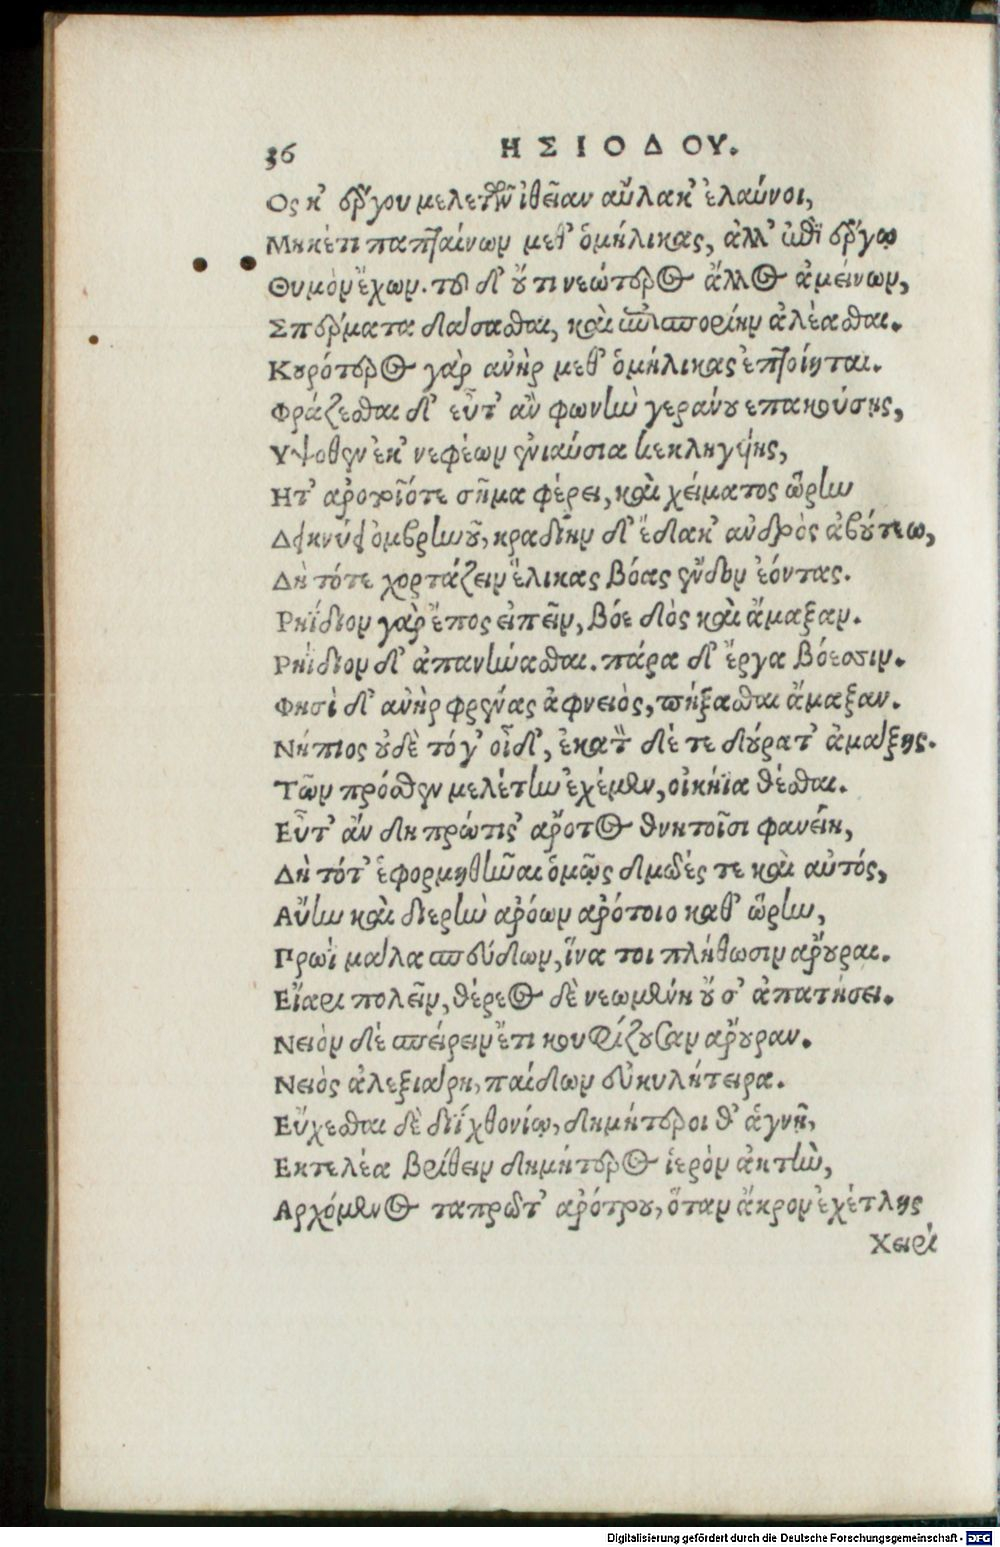 36 ΗΣΙΟΔΟΥ.
Ος κ' ἔργου μελετῶν ἰθεῖαν αὔλακ' ἐλαύνοι,
Μηκέτι παπταίνων μεθ' ὁμήλικας, ἀλλ' ἐπὶ ἔργῳ
Θυμὸν ἔχων. τοῦ δ' οὔτι νεώτερος ἄλλος ἀμείνων,
Σπέρματα δάσσασθαι, καὶ ἐπισπορίην ἀλέασθαι.
Κουρότερος γὰρ ἀνὴρ μεθ' ὁμήλικας ἐπτοίηται.
Φράζεσθαι δ' εὖτ' ἂν φωνὴν γεράνου επακούσῃς,
Υψόθεν ἐκ νεφέων ἐνιαύσια κεκληγυίης,
Ητ' ἀρότοιό τε σῆμα φέρει, καὶ χείματος ὥρην
Δεικνύει ὀμβρηνοῦ, κραδίην δ' ἔδακ' ἀνδρὸς ἀβούτεω,
Δὴ τότε χορτάζειν ἕλικας βόας ἔνδον ἐόντας.
Ρηΐδιον γὰρ ἔπος εἰπεῖν, βόε δὸς καὶ ἄμαξαν.
Ρηΐδιον δ' ἀπανήνασθαι. πάρα δ' ἔργα βόεσσιν.
Φησὶ δ' ἀνὴρ φρένας ἀφνειὸς, πήξασθαι ἄμαξαν.
Νήπιος οὐδὲ τόγ' οἶδ', ἑκατὸν δέ τε δούρατ' ἀμάξης.
Τῶν πρόσθεν μελέτην ἐχέμεν, οἰκήϊα θέσθαι.
Εὖτ' ἂν δὴ πρώτιστ' ἄροτος θνητοῖσι φανείη,
Δὴ τότ' ἐφορμηθῆναι ὁμῶς δμῶές τε καὶ αὐτός,
Αὔην καὶ διερὴν ἀρόων ἀρότοιο καθ' ὥρην,
Πρωῒ μάλα σπεύδων, ἵνα τοι πλήθωσιν ἄρουραι.
Εἴαρι πολεῖν, θέρεος δὲ νεωμένη οὔ σ' ἀπατήσει.
Νειὸν δὲ σπείρειν ἔτι κουφίζουσαν ἄρουραν.
Νειὸς ἀλεξιάρη, παίδων εὐκηλήτειρα.
Εὔχεσθαι δὲ διῒ χθονίῳ, δημήτεροι θ' ἁγνῇ,
Εκτελέα βρίθειν δημήτερος ἱερὸν ἀκτὴν,
Αρχόμενος ταπρῶτ' ἀρότρου, ὅταν ἄκρον ἐχέτλης
Χειρὶ
Digitalisierung gefördert durch die Deutsche Forschungsgemeinschaft - DFG